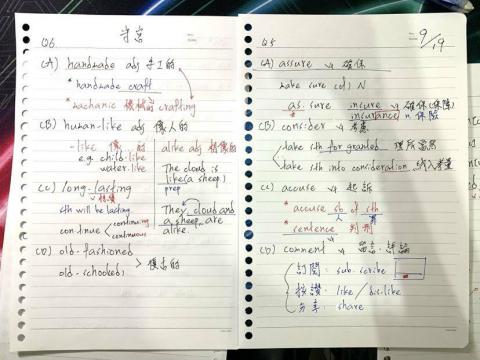 Q6. 守宮
(A) handmade adj 手工的
* handmade craft
* machanic 機械的 crafting
(B) human-like adj 像人的
-like 像的
e.g. child-like
water-like
alike adj 相像的
The cloud is
like (a sheep)
prep
(C) long-lasting
持續
sth will be lasting
continue < continuing
continuous
The cloud and
a sheep are
alike.
(D) old-fashioned
old-schooled > 復古的
Q5 二 9/19
(A) assure v. 確保
make sure (of) N
as. sure insure v. 確保(保險)
* insurance n 保險
(B) consider v. 考慮
take sth for granted 理所當然
take sth into consideration 納入考量
(C) accuse v. 起訴
* accuse sb of sth
人 罪
* sentence 判刑
(D) comment v. 留言, 評論
訂閱: sub-scribe
按讚: like / dis.like
分享: share